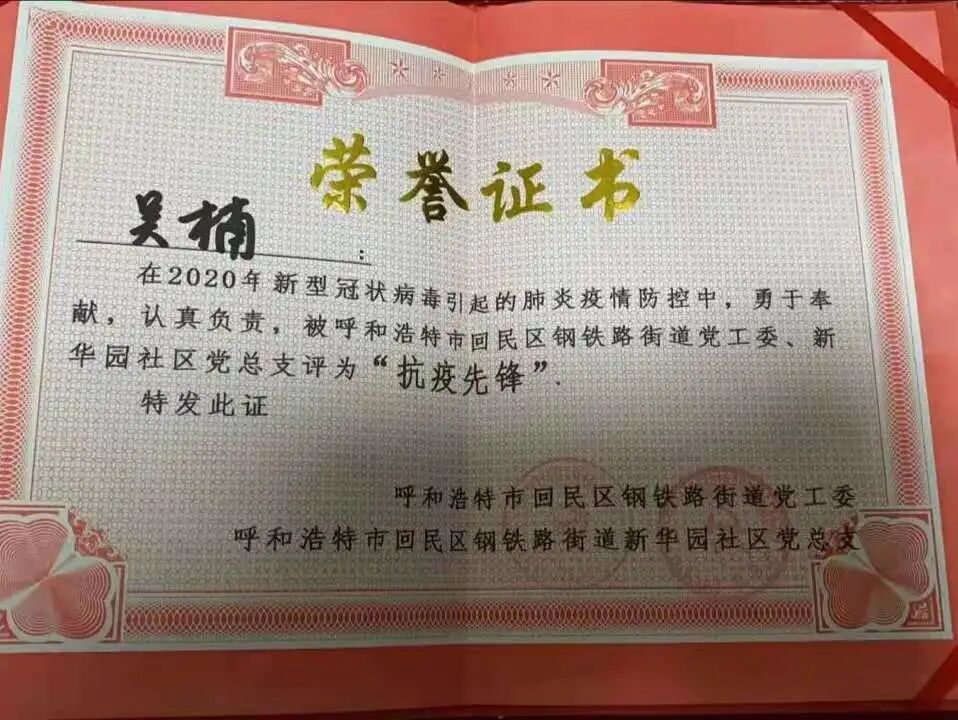 荣誉证书
吴楠:
在2020年新型冠状病毒引起的肺炎疫情防控中，勇于奉
献，认真负责，被呼和浩特市回民区钢铁路街道党工委、新
华园社区党总支评为“抗疫先锋”.
特发此证
呼和浩特市回民区钢铁路街道党工委
呼和浩特市回民区钢铁路街道新华园社区党总支